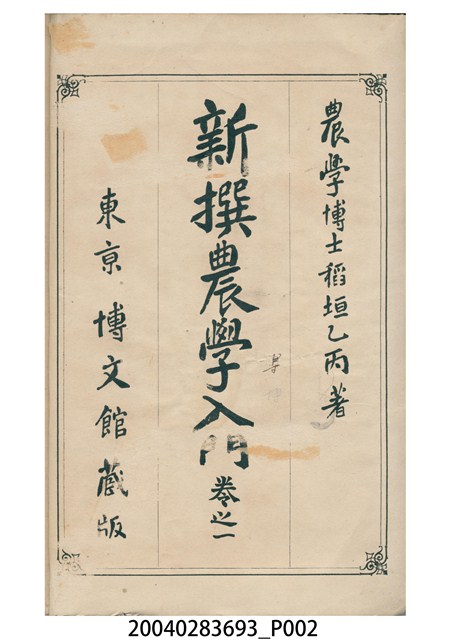 農學博士稻垣乙丙著
新撰農學入門 卷之一
東京 博文館藏版
20040283693_P002